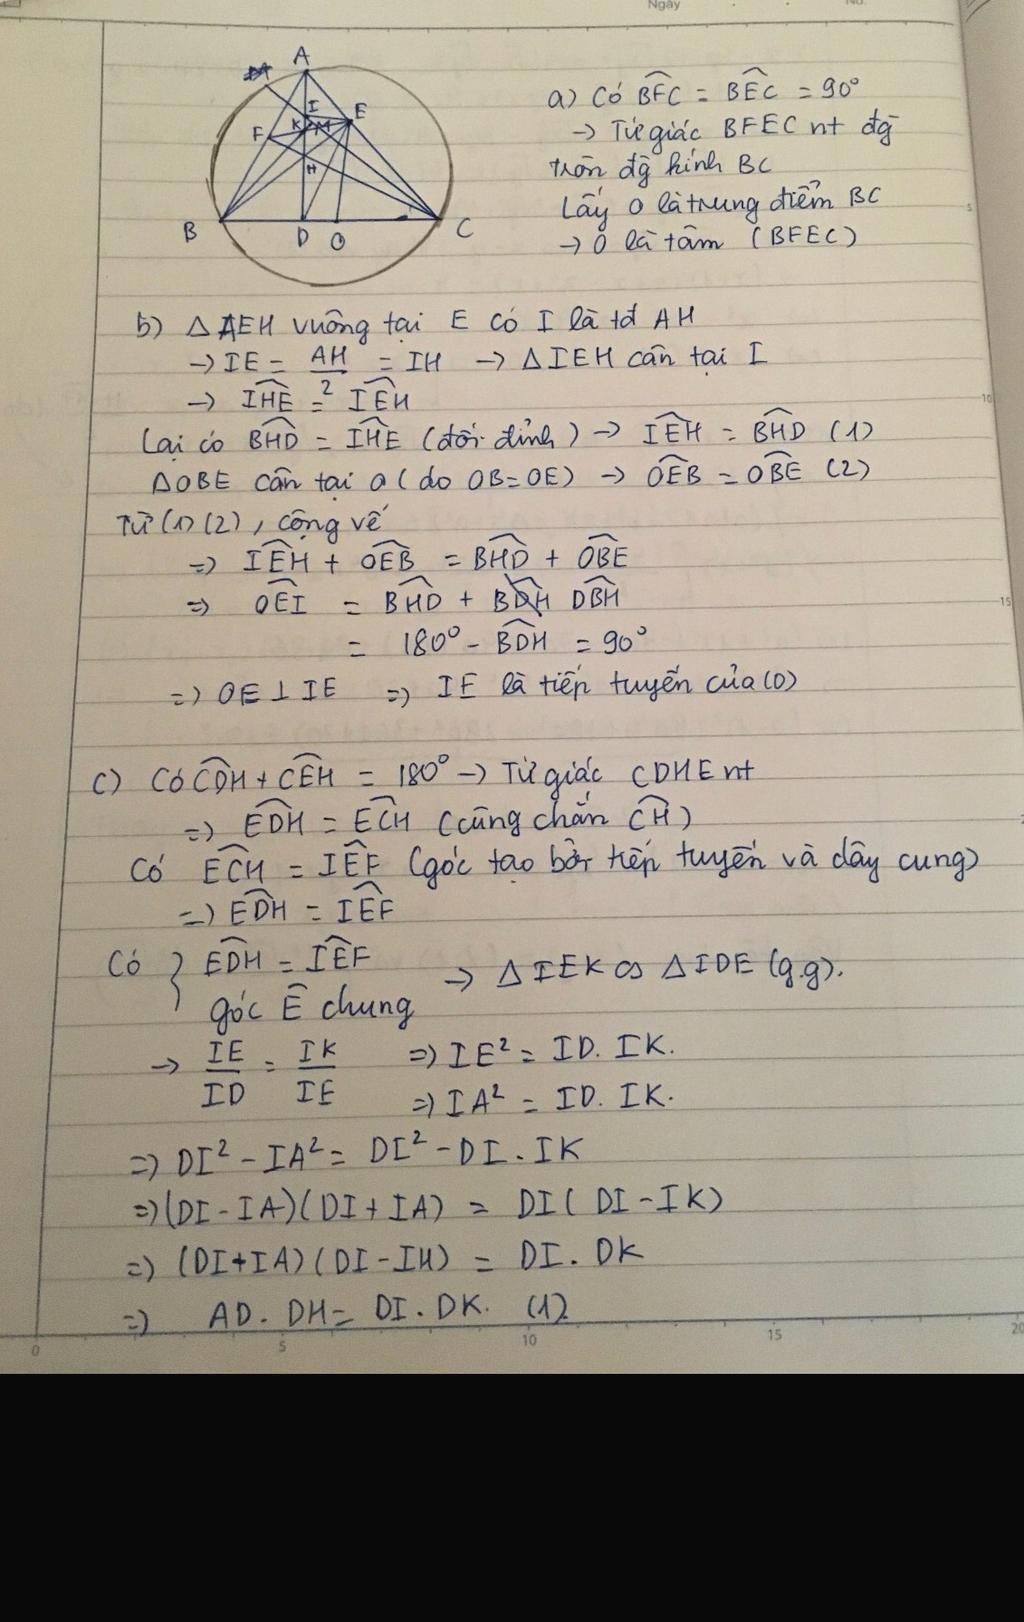 Ngày
No.
A
I
K
M
E
F
H
B
D
O
C
a) Có BFC = BEC = 90°
→ Tứ giác BFEC nt đg
tròn đg kính BC
Lấy O là trung điểm BC
→ O là tâm (BFEC)
b) △AEH vuông tại E có I là tđ AH
→ IE = AH/2 = IH → △IEH cân tại I
→ IHE = IEH
Lại có BHD = IHE (đối đỉnh) → IEH = BHD (1)
△OBE cân tại O (do OB=OE) → OEB = OBE (2)
Từ (1) (2), cộng vế
=> IEH + OEB = BHD + OBE
=> OEI = BHD + DBH
= 180° - BDH = 90°
=> OE⊥IE => IE là tiếp tuyến của (O)
c) Có CDH + CEH = 180° → Tứ giác CDHE nt
=> EDH = ECH (cùng chắn CH)
Có ECH = IEF (góc tạo bởi tiếp tuyến và dây cung)
=> EDH = IEF
Có { EDH = IEF → △IEK ∽ △IDE (g.g).
góc E chung
→ IE/ID = IK/IE => IE² = ID. IK.
=> IA² = ID. IK.
=> DI² - IA² = DI² - DI. IK
=> (DI - IA)(DI + IA) = DI( DI - IK)
=> (DI+IA)(DI-IH) = DI. DK
=> AD. DH = DI. DK. (1)
0
5
10
15
20
5
10
15